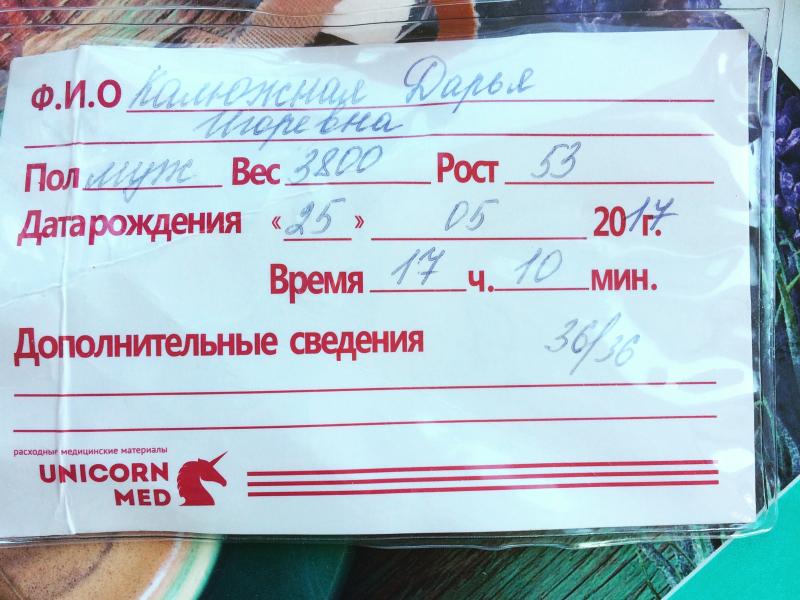 Ф.И.О Калюжная Дарья
Игоревна
Пол муж Вес 3800 Рост 53
Дата рождения «25» 05 2017г.
Время 17 ч. 10 мин.
Дополнительные сведения 36/36
расходные медицинские материалы
UNICORN
MED